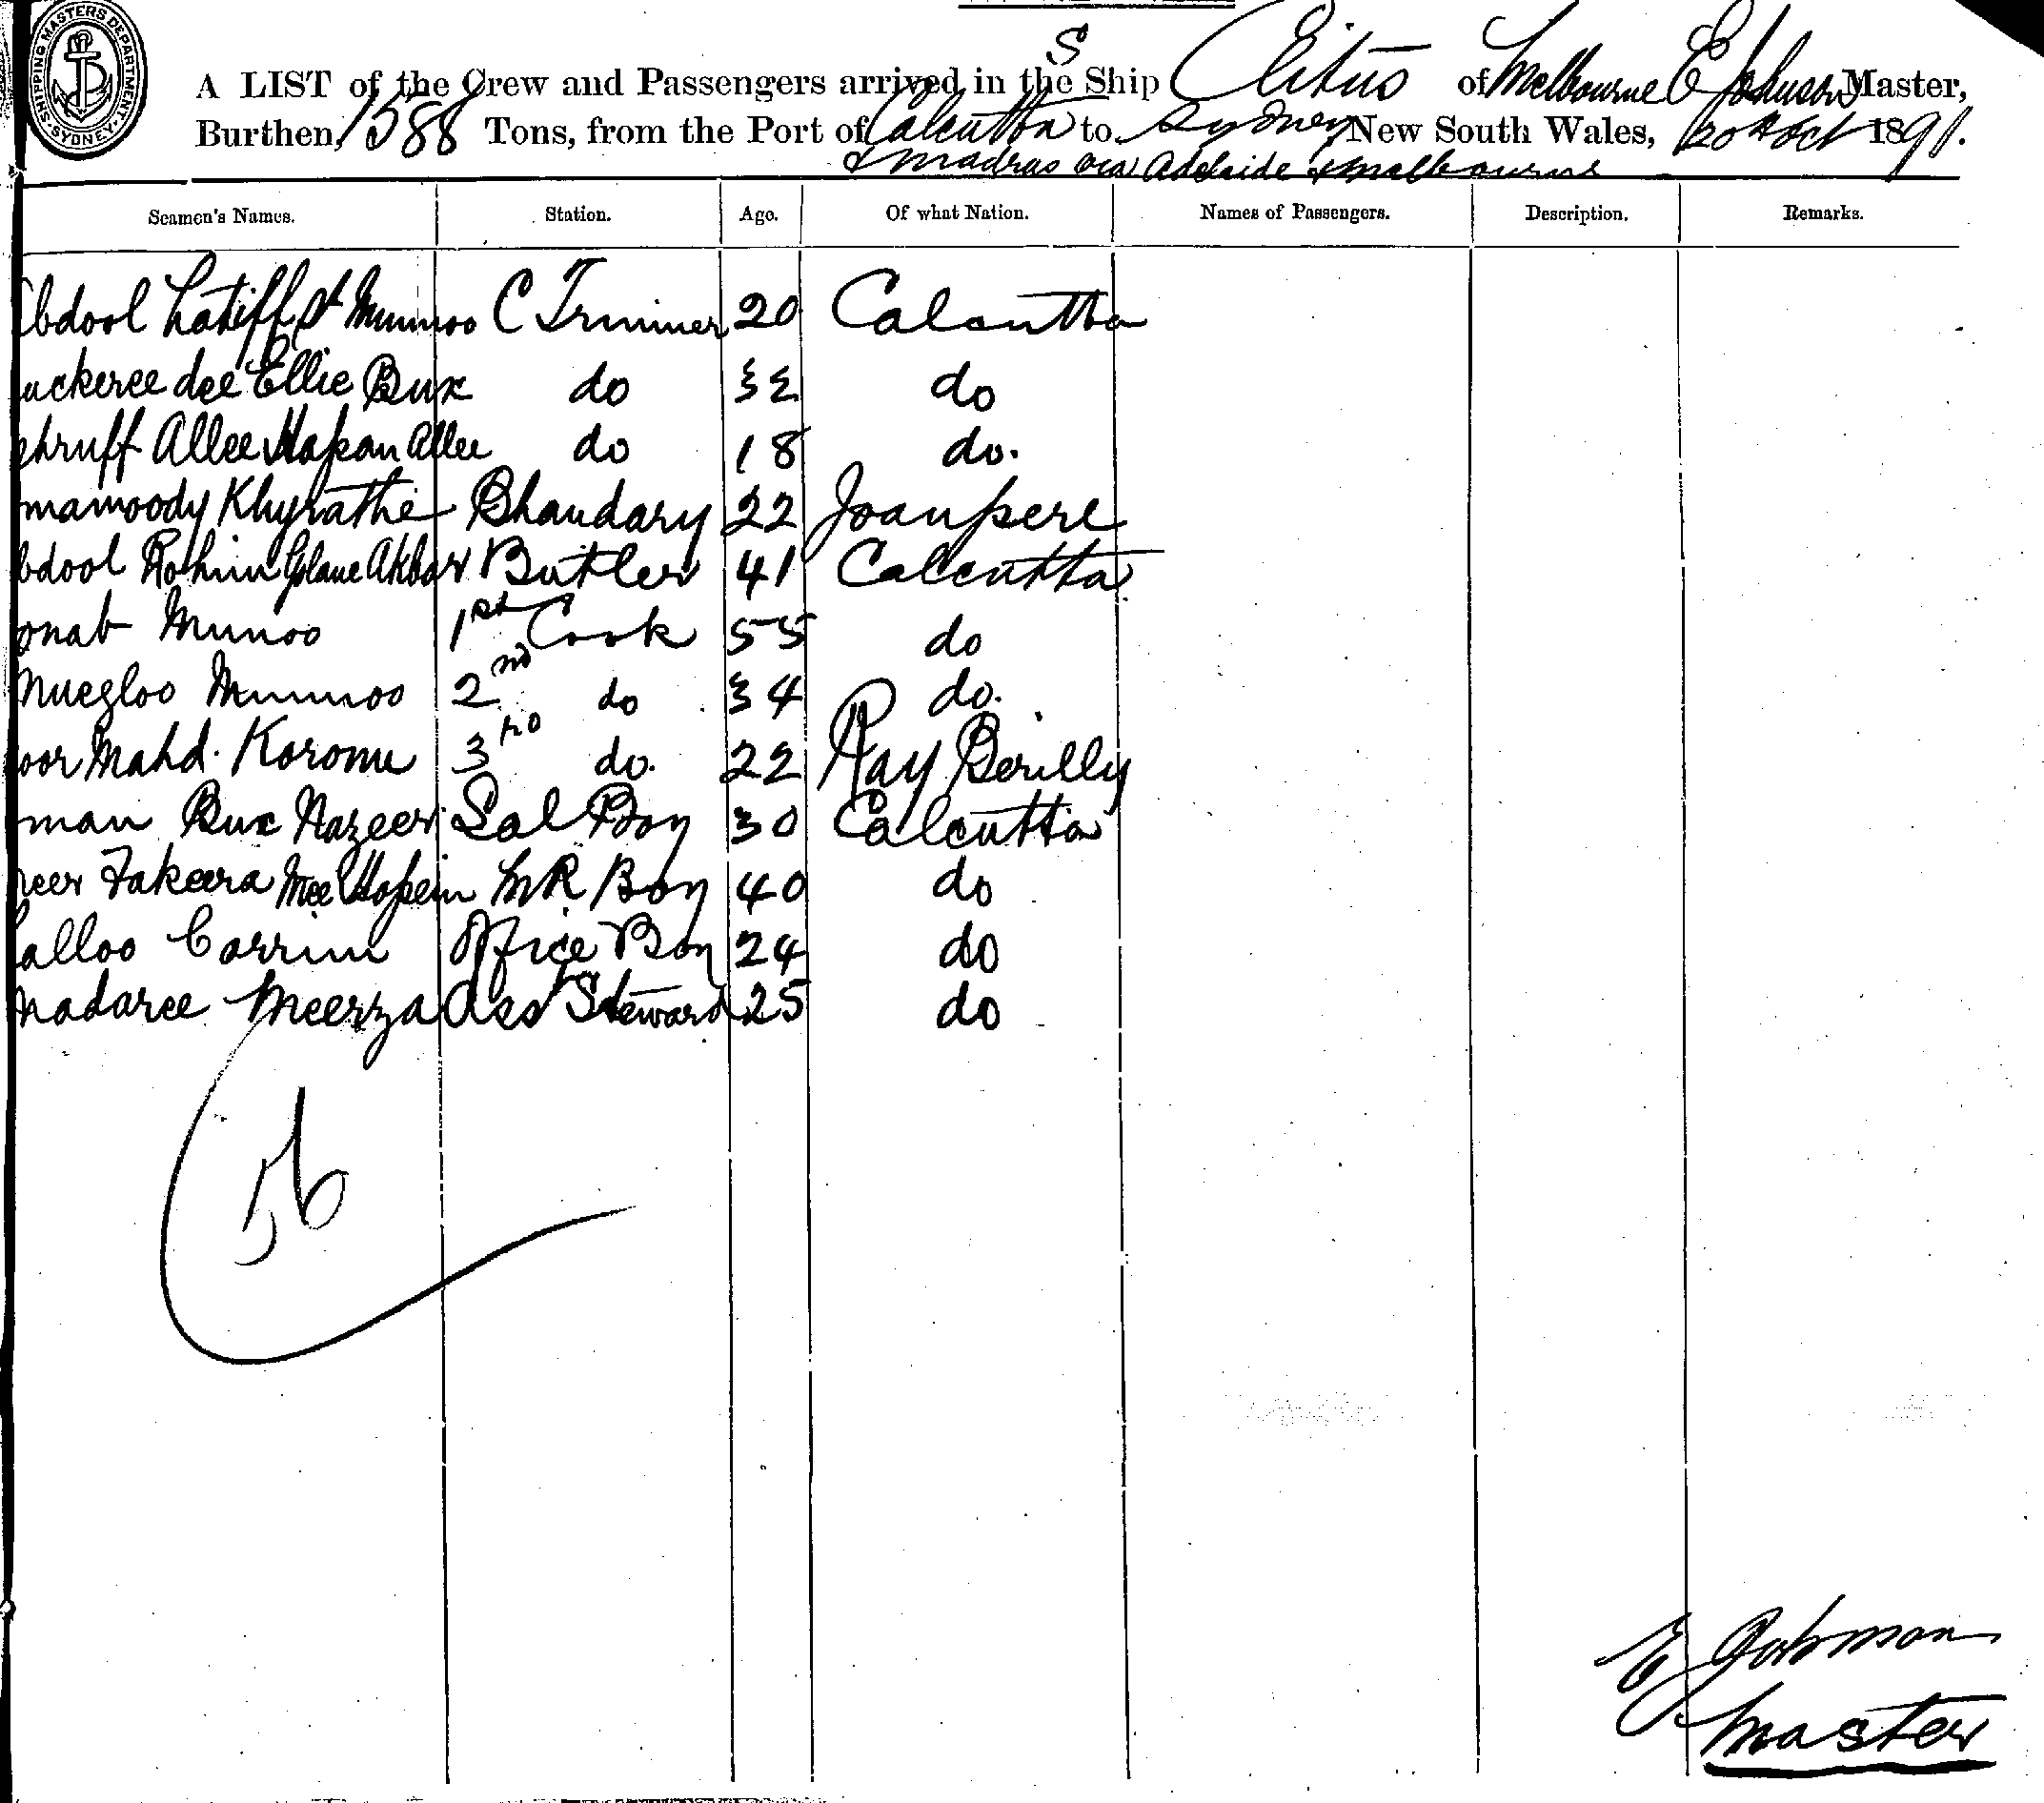 SHIPPING MASTERS DEPARTMENT. SYDNEY.
S
A LIST of the Crew and Passengers arrived in the Ship Clitus of Melbourne E Johnson Master,
Burthen, 1588 Tons, from the Port of Calcutta to Sydney New South Wales, 20th Oct 1891.
& Madras via Adelaide & Melbourne
Seamen's Names. Station. Age. Of what Nation. Names of Passengers. Description. Remarks.
bdool Latiff St Munnoo C Trimmer 20 Calcutta
uckeree dee Ellie Bux do 32 do
shruff Allee Hapan Allee do 18 do.
mamoody Khyrathie Bhandary 22 Joanpere
bdool Rohim Golane Akbar Butler 41 Calcutta
onab Munoo 1st Cook 55 do
Nuegloo Munnoo 2nd do 34 do.
oor Mahd. Korome 3rd do. 22 Ray Berilly
man Bux Nazeer Sal Boy 30 Calcutta
eer Fakeera Mee Hopein MR Boy 40 do
alloo Corrim Office Boy 24 do
madaree Meerza Asst Steward 25 do
56
E Johnson
Master